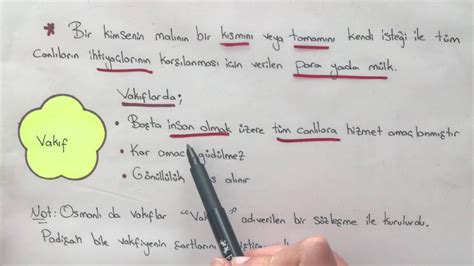 * Bir kimsenin malının bir kısmını veya tamamını kendi isteği ile tüm
Canlıların ihtiyaçlarının karşılanması için verilen para yada mülk.
Vakıflarda;
Vakıf
• Başta insan olmak üzere tüm canlılara hizmet amaçlanmıştır
• Kar güdülmez
• Gönüllülük alınır
Not: Osmanlı da vakıflar adı verilen bir sözleşme ile kurulurdu.
Padişah bile vakfiyenin şartlarını